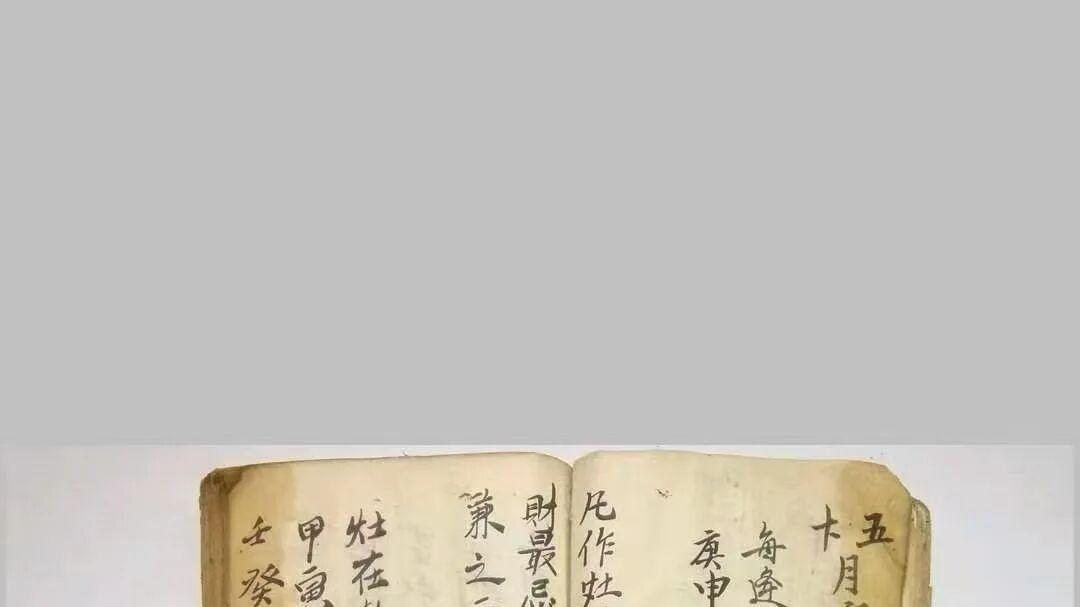 五月
十
每逢
庚申
凡作灶
財最忌
兼之
灶在
甲寅
壬癸